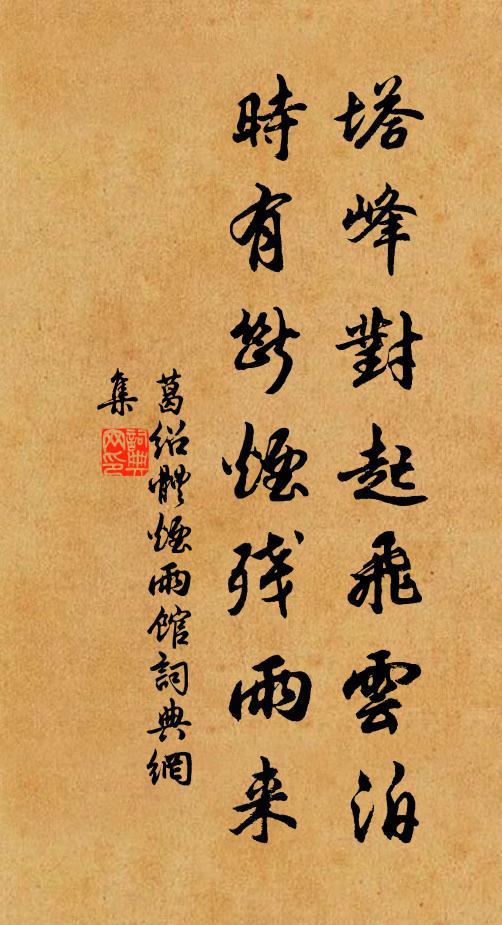 塔峰對起飛雲泊
時有斷煙殘雨来
葛紹體煙雨館詞典網
集
詞典網印